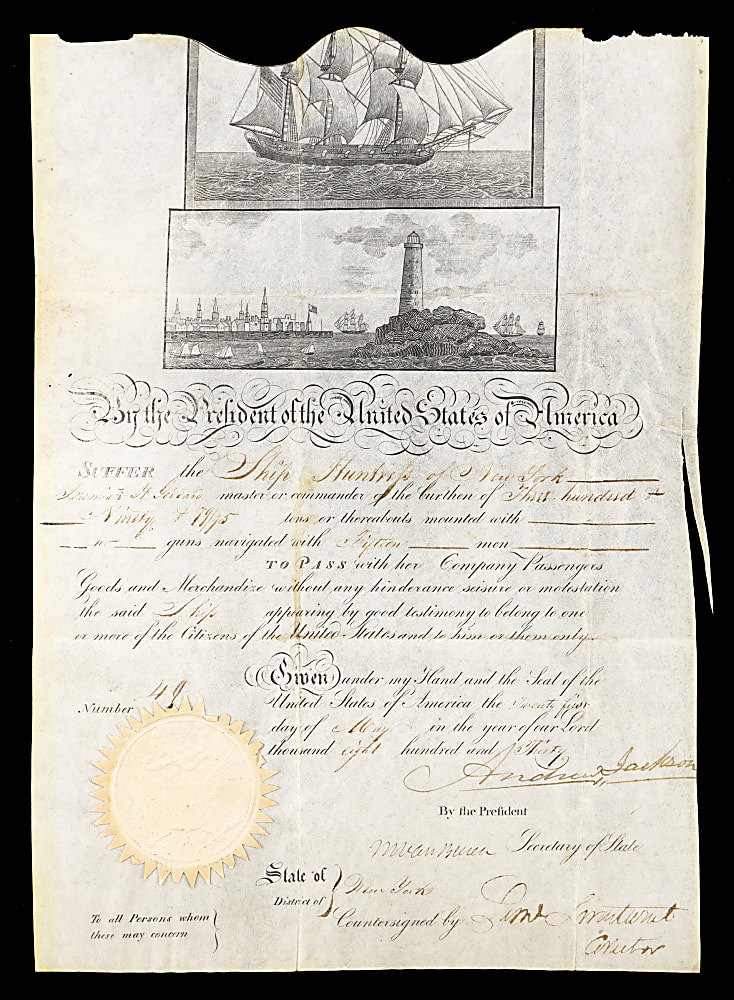 By the President of the United States of America
SUFFER the Ship Huntress of New York
master or commander of the burthen of Three hundred &
Ninety & 79/95 tons or thereabouts mounted with
no guns navigated with Fifteen men
TO PASS with her Company Passengers
Goods and Merchandize without any hinderance seisure or molestation
the said Ship appearing by good testimony to belong to one
or more of the Citizens of the United States and to him or them only.
Given under my Hand and the Seal of the
United States of America the Twenty first
day of May in the year of our Lord
thousand eight hundred and Thirty
Number 49
Andrew Jackson
By the President
M Van Buren Secretary of State
State of
District of } New York
Countersigned by Saml Swartwout
Collector
To all Persons whom
these may concern }